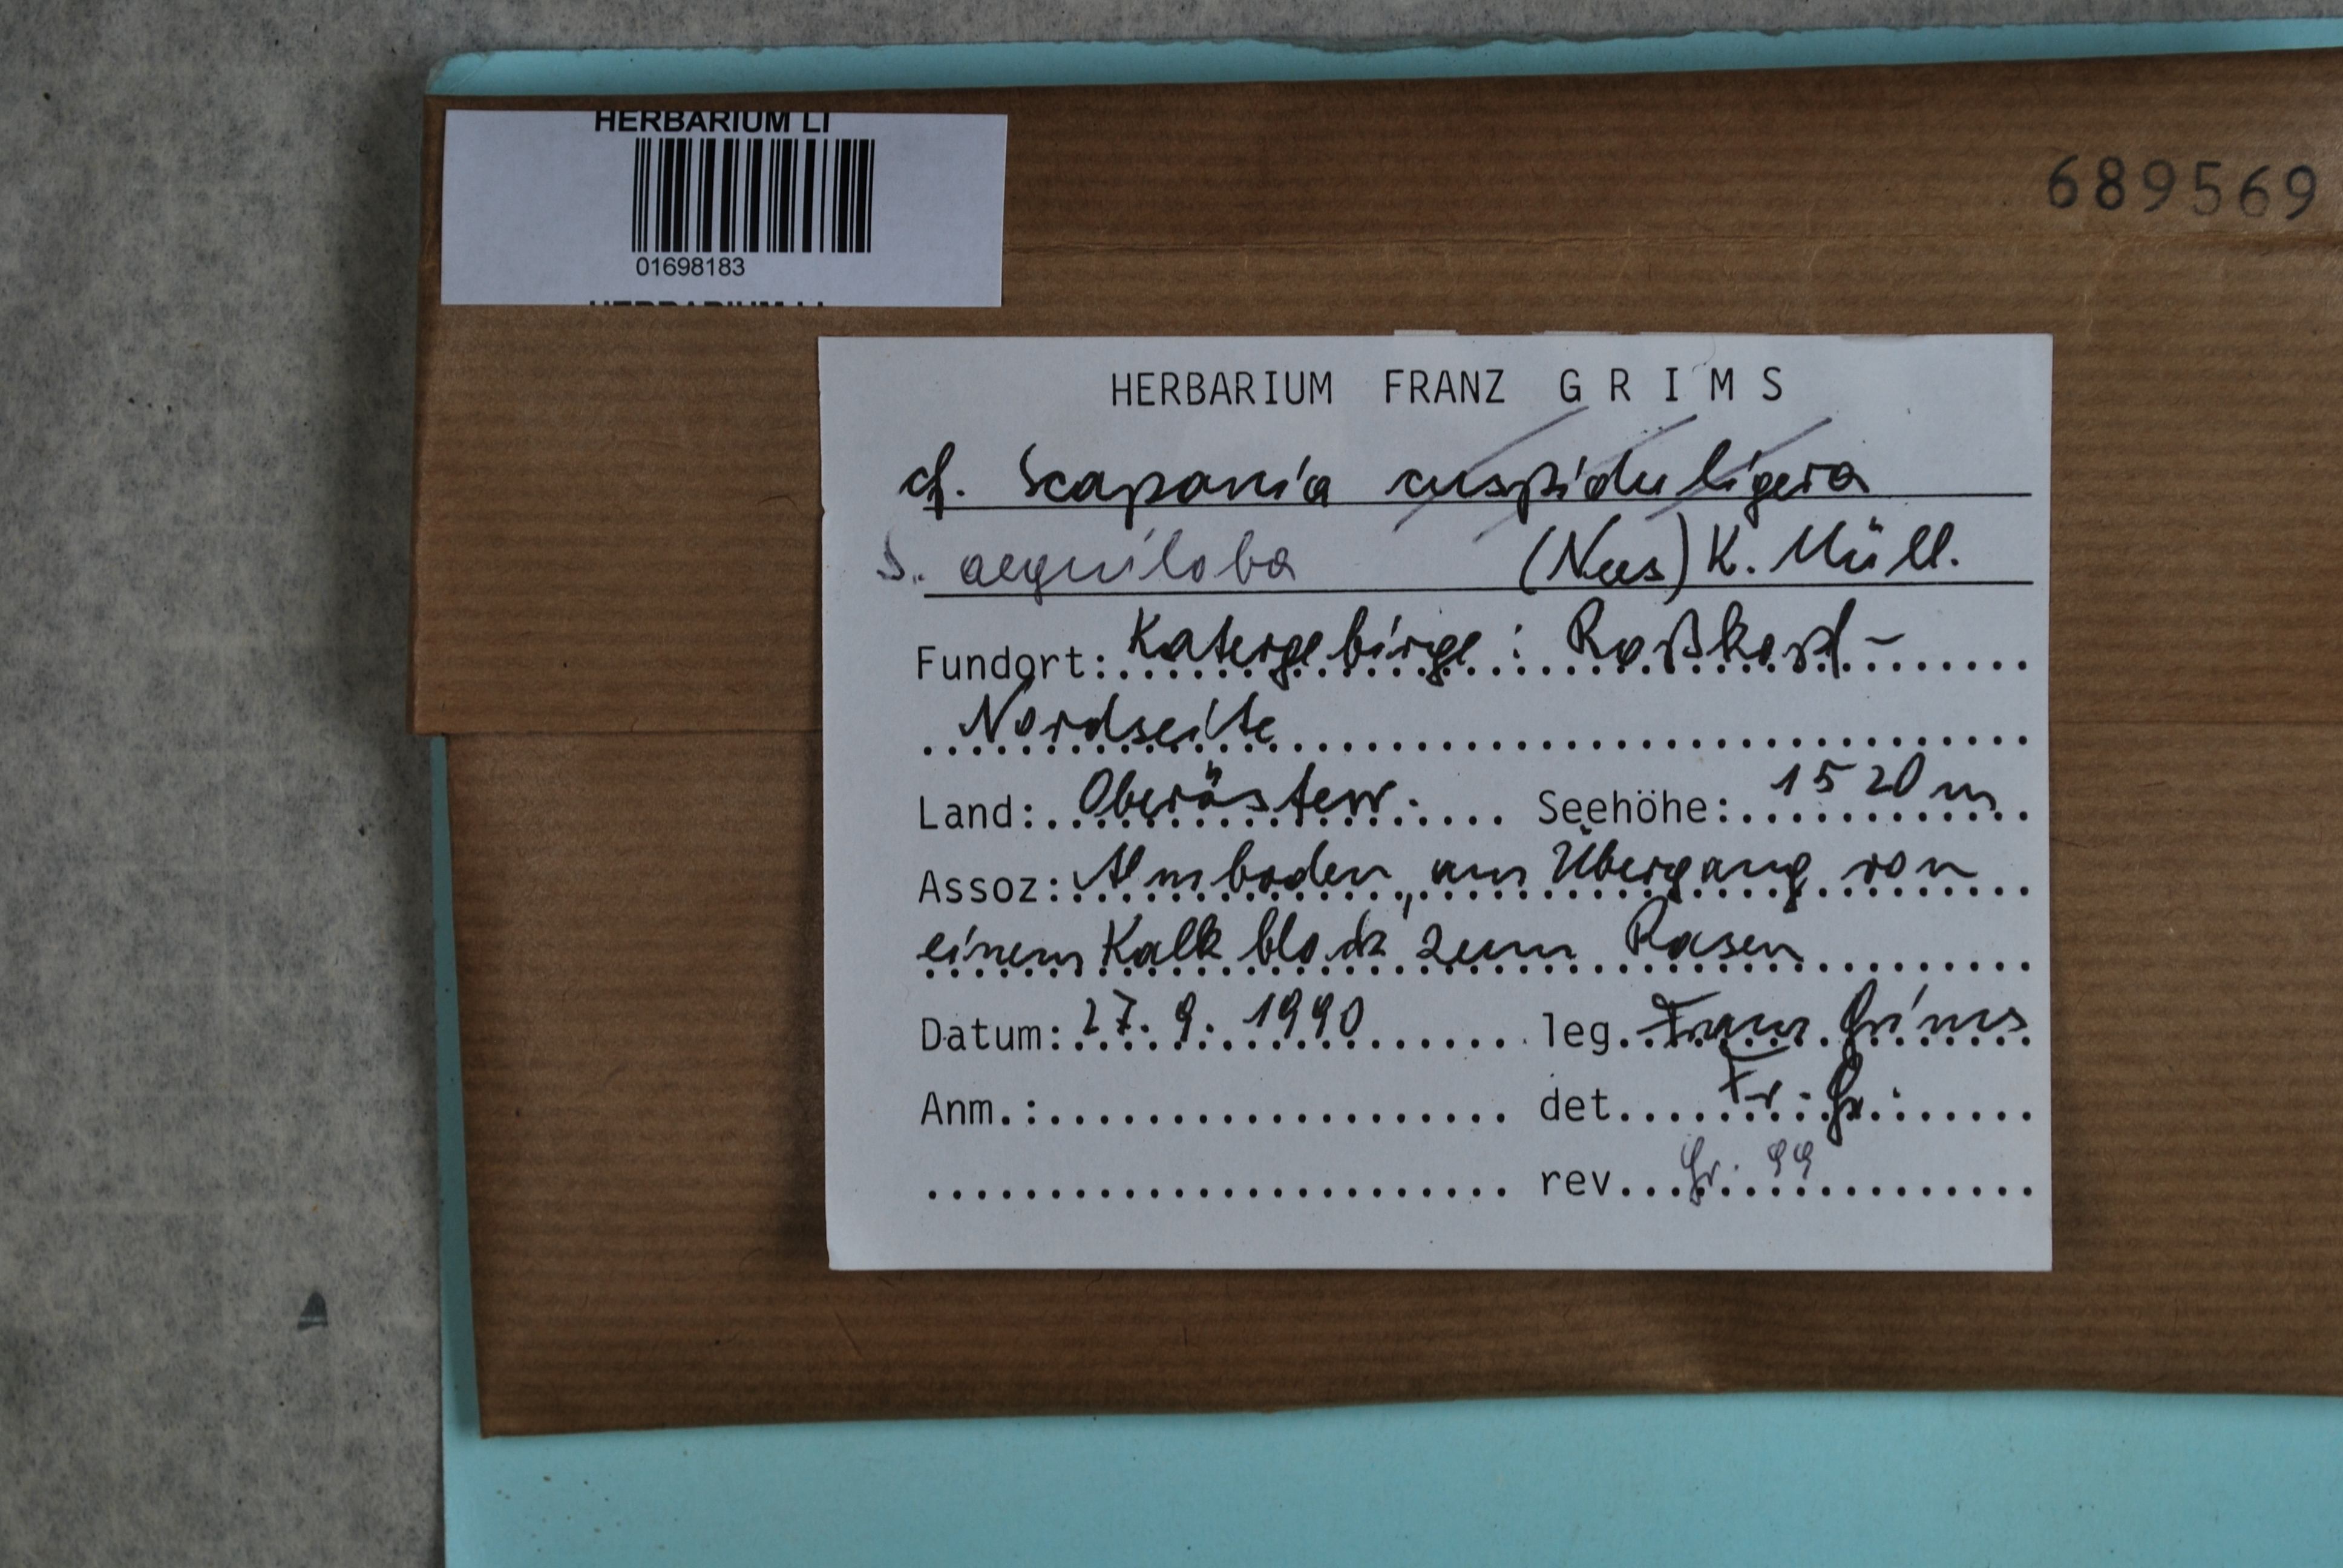 HERBARIUM LI
01698183
HERBARIUM LI
689569
HERBARIUM FRANZ GRIMS
cf. Scapania cuspiduligera
S. aequiloba (Nees) K. Müll.
Fundort: Katergebirge: Roßkopf-
Nordseite
Land: Oberösterr. Seehöhe: 1520 m
Assoz: Almboden, am Übergang von
einem Kalkblock zum Rasen
Datum: 27. 9. 1990 leg. Franz Grims
Anm.: det. Fr. Gr.
rev. Gr. 99